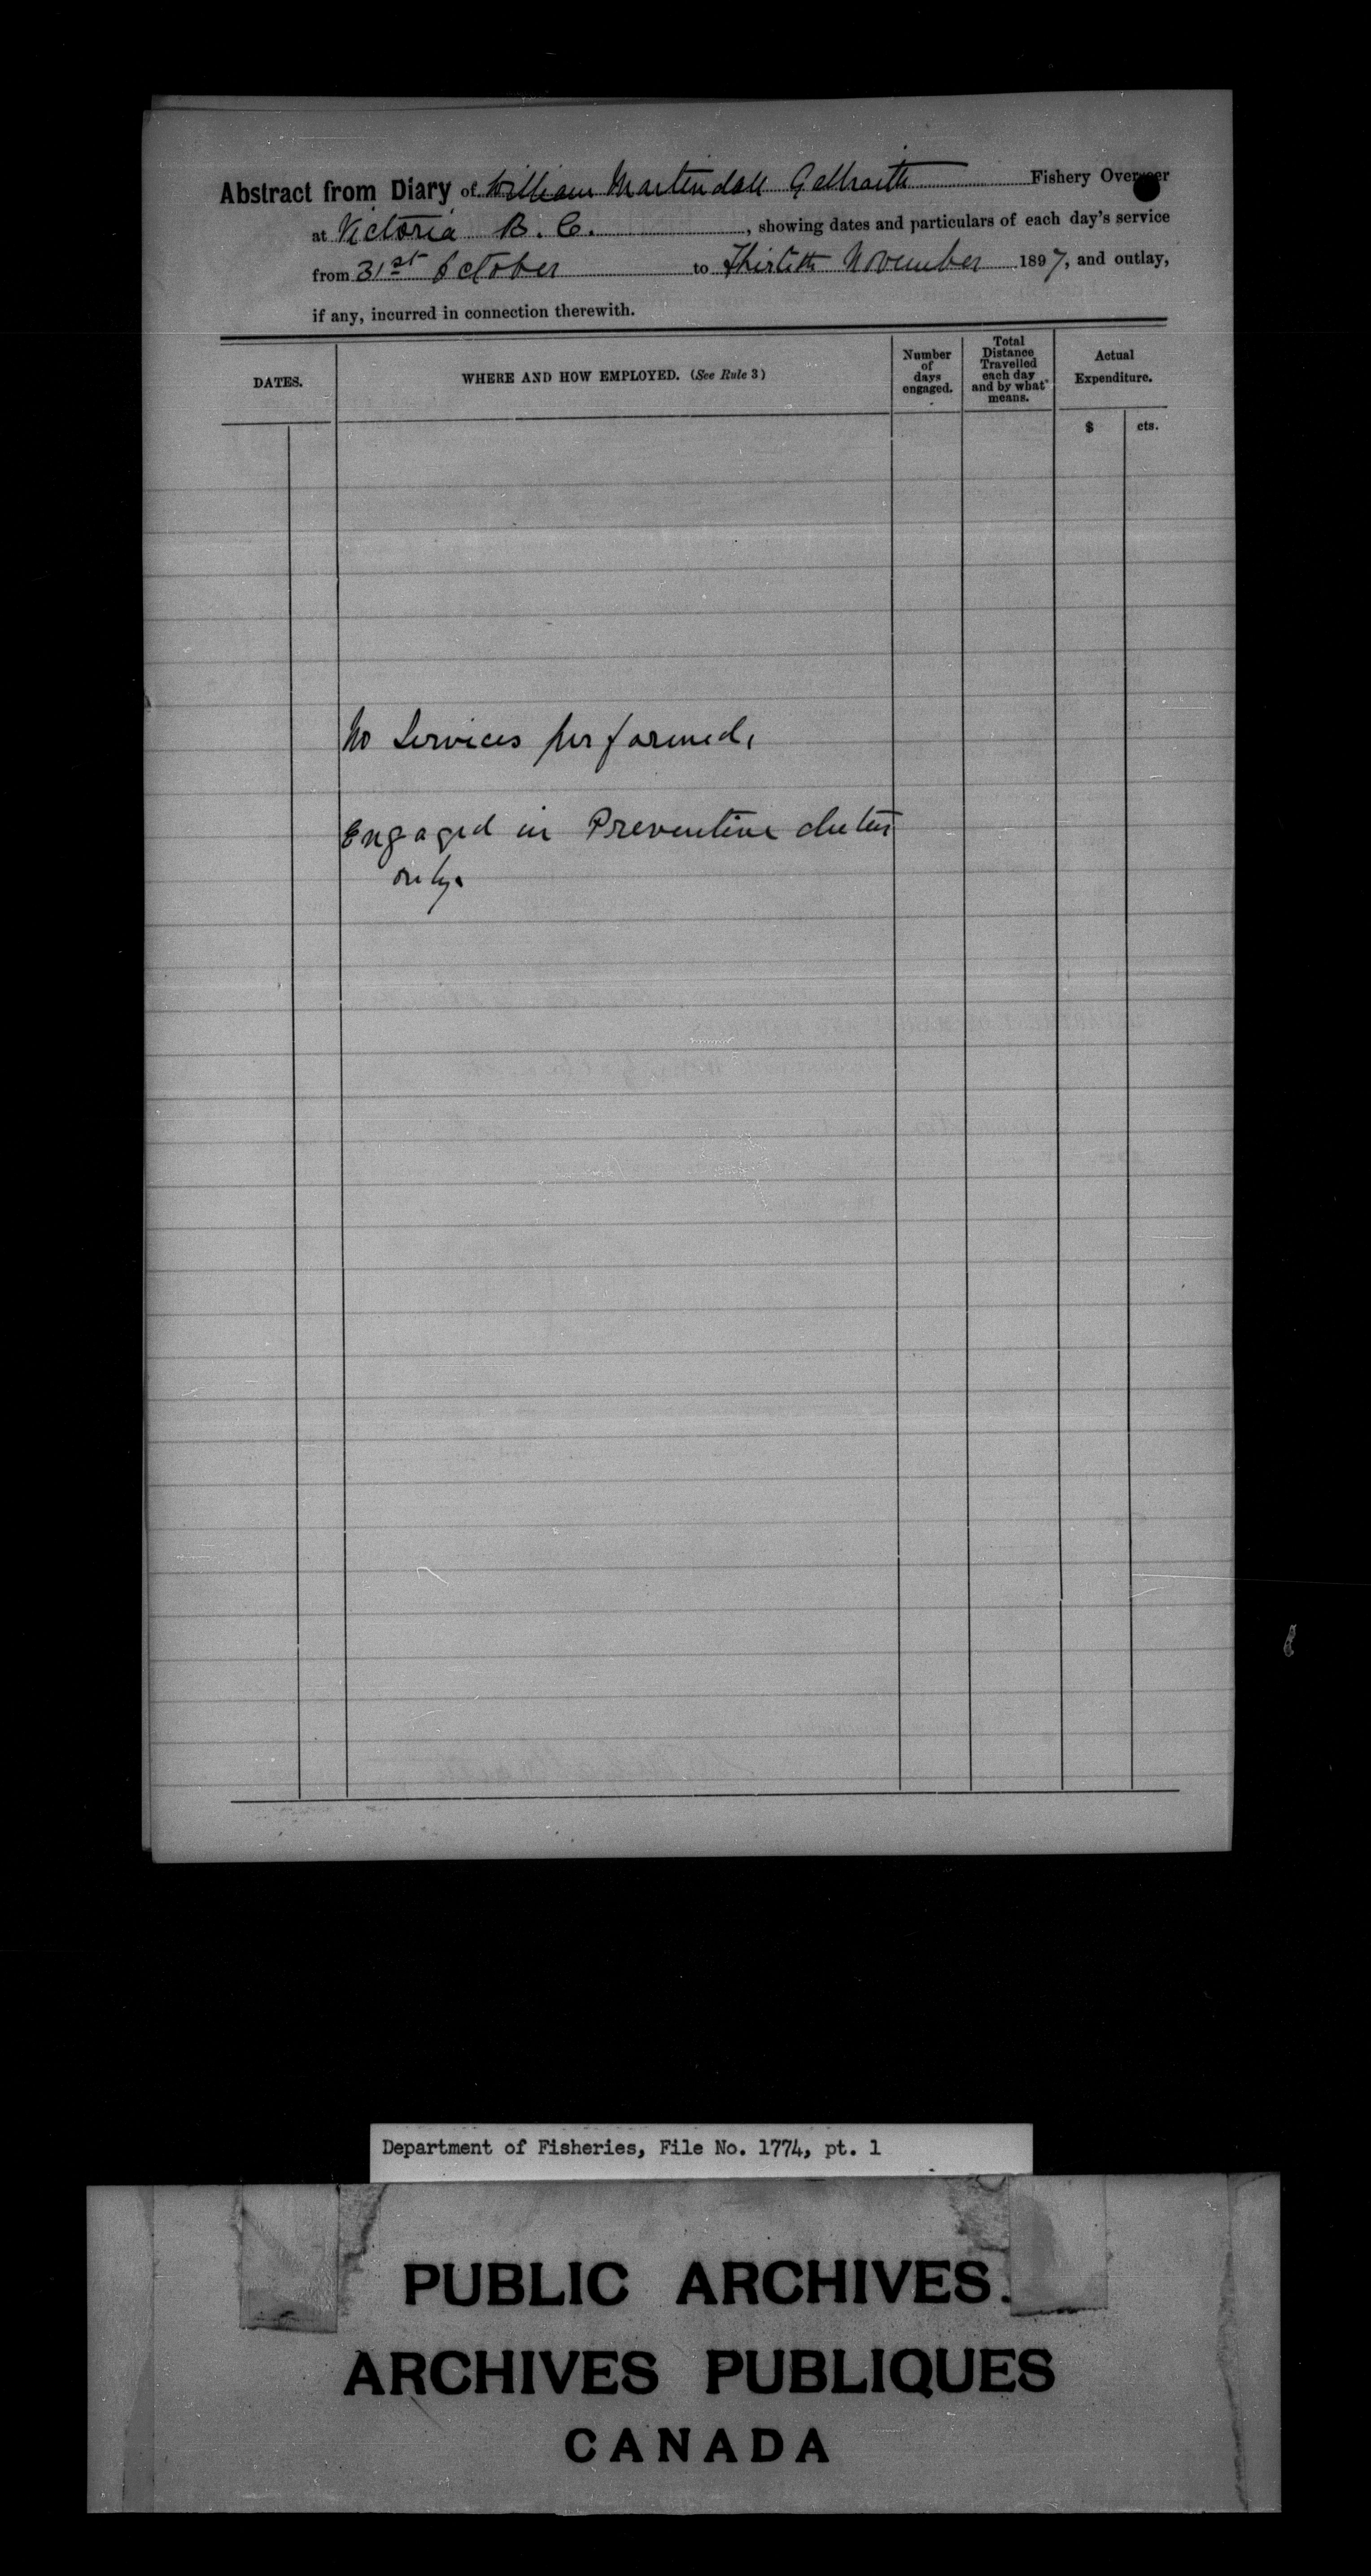 Abstract from Diary of William Martindale Galbraith Fishery Overseer
at Victoria B. C. , showing dates and particulars of each day's service
from 31st October to Thirtieth November 1897, and outlay,
if any, incurred in connection therewith.
DATES.
WHERE AND HOW EMPLOYED. (See Rule 3)
Number of days engaged.
Total Distance Travelled each day and by what means.
Actual Expenditure.
$ cts.
No Services performed,
Engaged in Preventive duties
only.
Department of Fisheries, File No. 1774, pt. 1
PUBLIC ARCHIVES.
ARCHIVES PUBLIQUES
CANADA